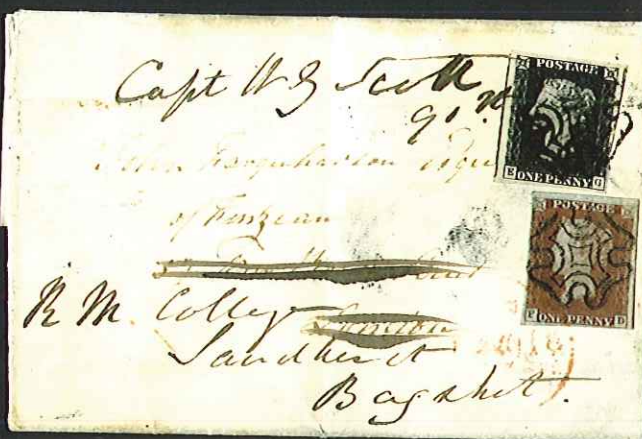 Capt W G Scott
91
John Farquharson Esqre
of Finzean
R M. College London
Sandhurst
Bagshot.
POSTAGE
E ONE PENNY G
POSTAGE
F ONE PENNY D